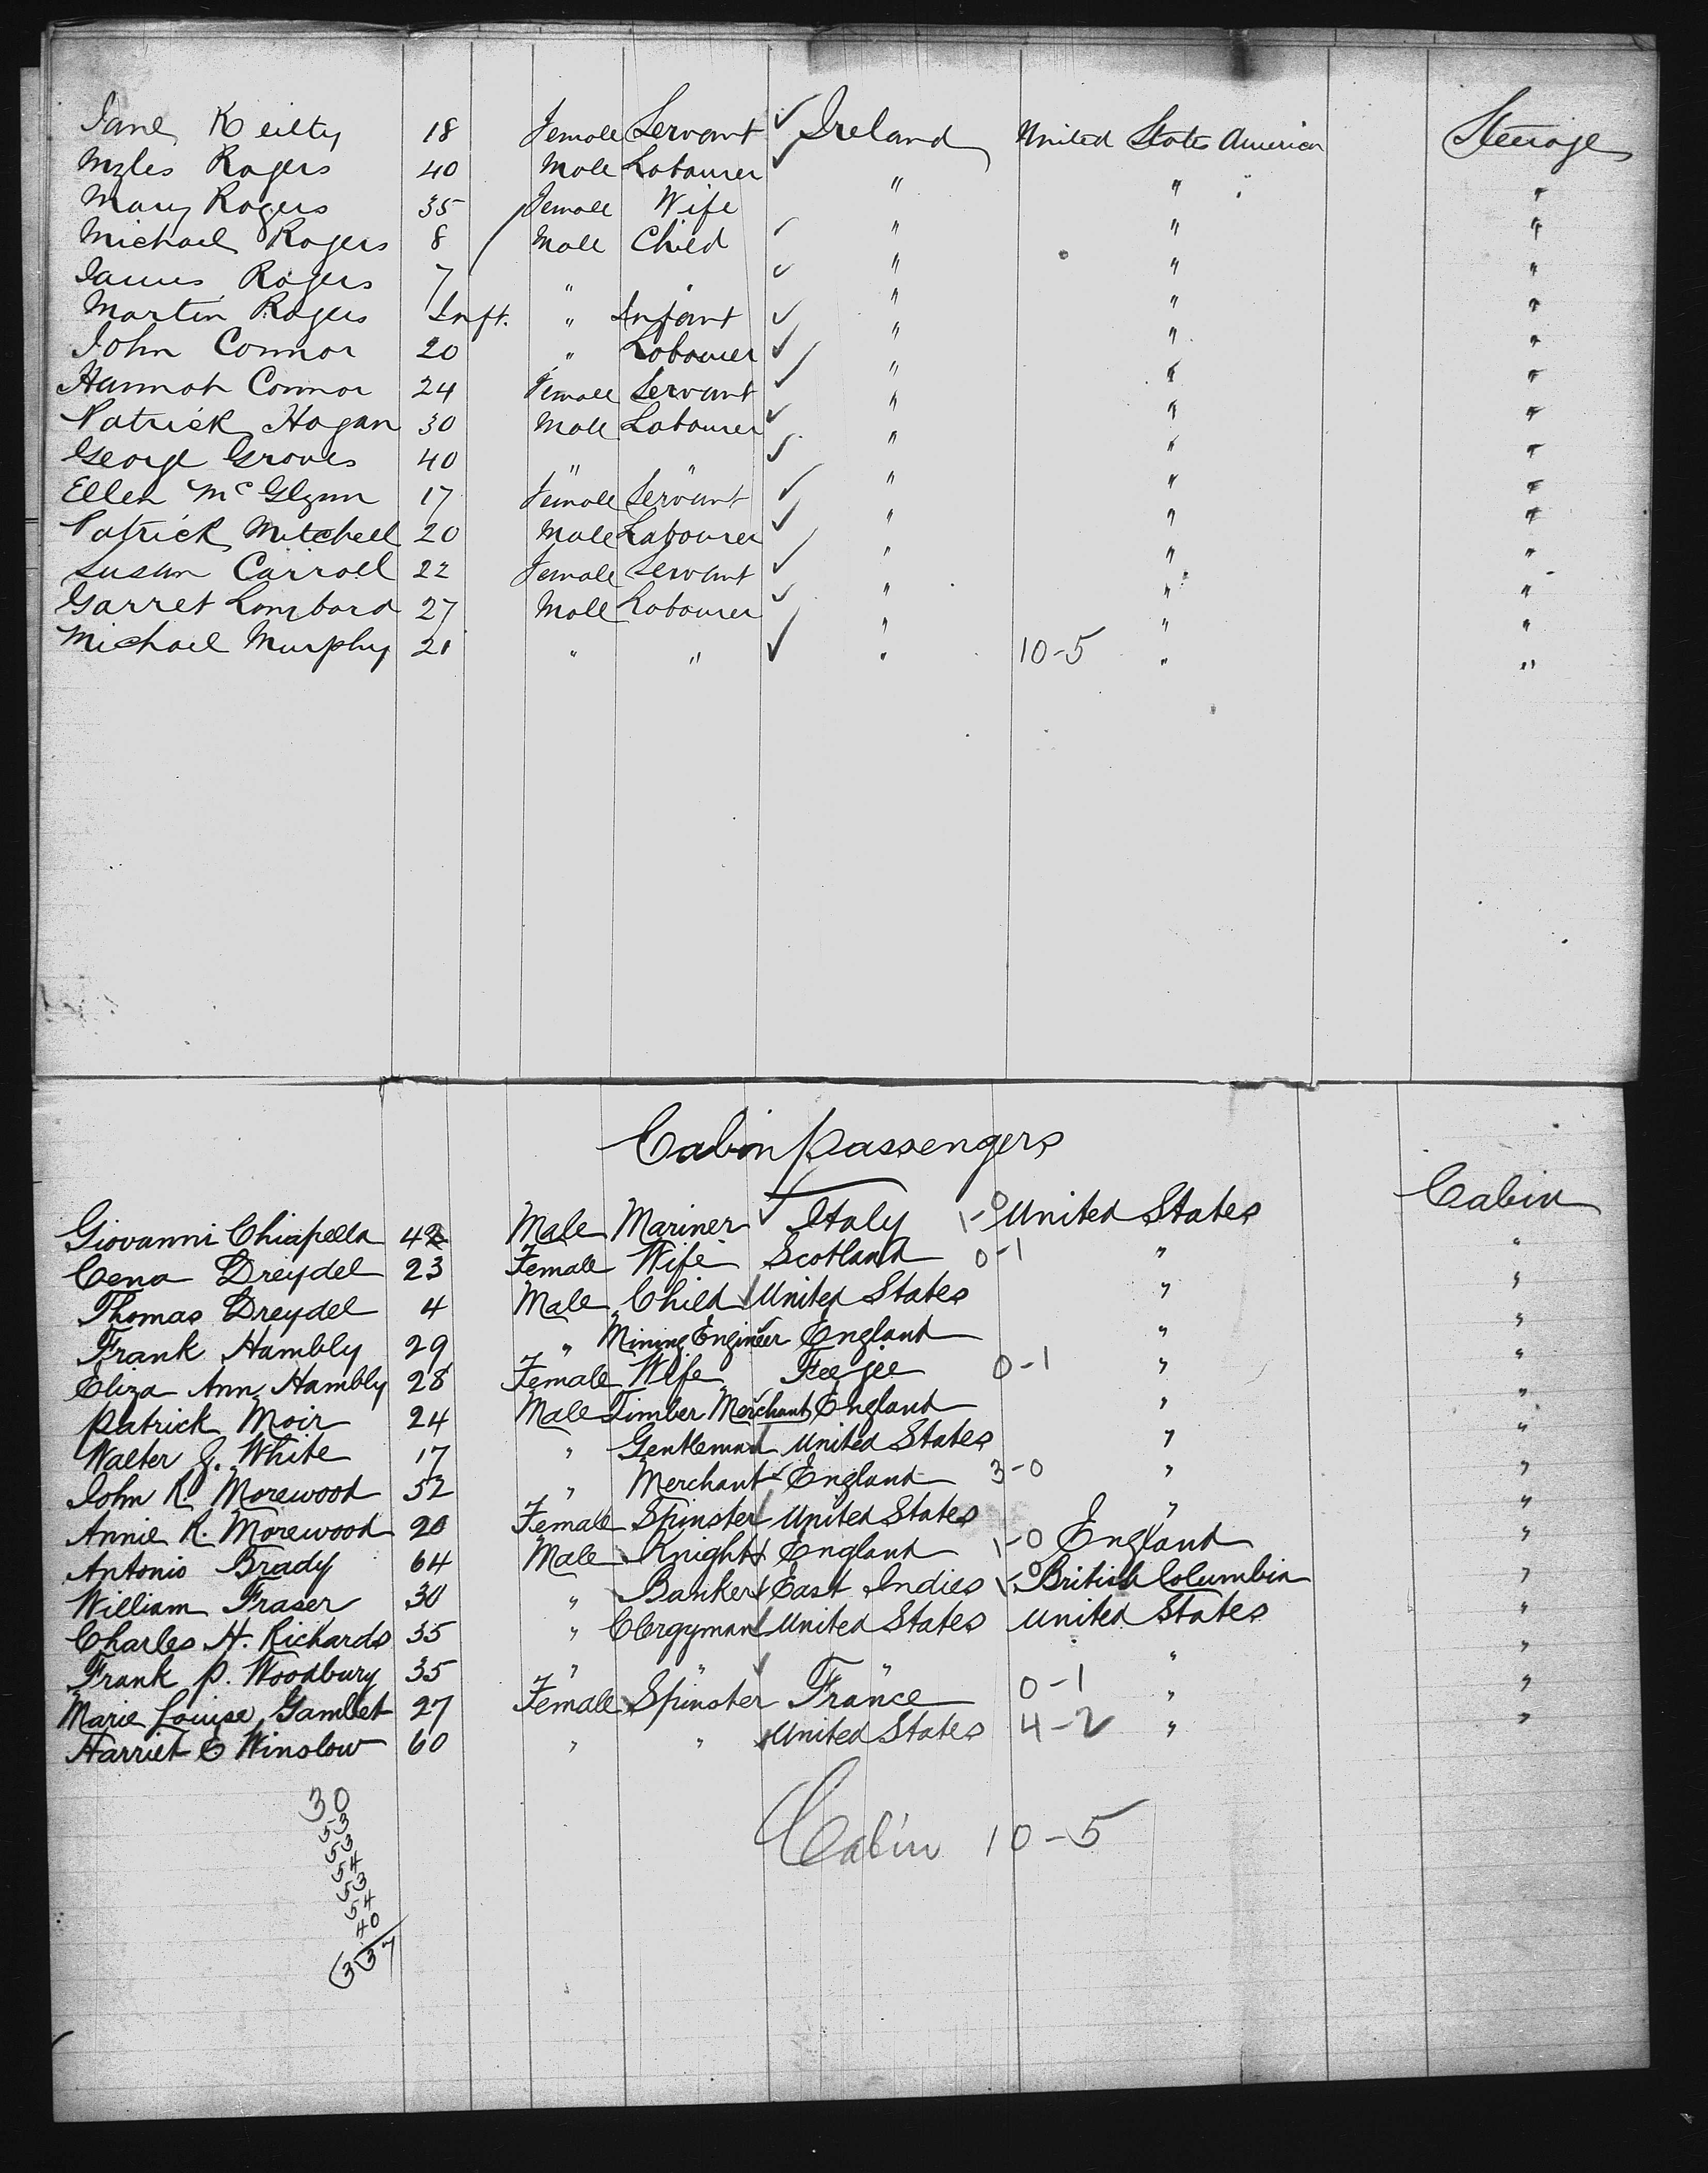 Jane Keilty 18 Female Servant ✓ Ireland United States America Steerage
Myles Rogers 40 Male Labourer ✓ " " "
Mary Rogers 35 Female Wife " " "
Michael Rogers 8 Male Child ✓ " " "
James Rogers 7 " " ✓ " " "
Martin Rogers Inft. " Infant ✓ " " "
John Connor 20 " Labourer ✓ " " "
Hannah Connor 24 Female Servant ✓ " " "
Patrick Hogan 30 Male Labourer ✓ " " "
George Groves 40 " " ✓ " " "
Ellen McGlynn 17 Female Servant ✓ " " "
Patrick Mitchell 20 Male Labourer ✓ " " "
Susan Carroll 22 Female Servant ✓ " " "
Garret Lombard 27 Male Labourer ✓ " " "
Michael Murphy 21 " " ✓ " 10-5 " "
Cabin passengers
Cabin
Giovanni Chiapella 42 Male Mariner ✓ Italy 1-0 United States
Cena Dreydel 23 Female Wife Scotland 0-1 " "
Thomas Dreydel 4 Male Child ✓ United States " "
Frank Hambly 29 " Mining Engineer England " "
Eliza Ann Hambly 28 Female Wife Feejee 0-1 " "
Patrick Moir 24 Male Timber Merchant England " "
Walter J. White 17 " Gentleman ✓ United States " "
John R. Morewood 52 " Merchant ✓ England 3-0 " "
Annie R. Morewood 20 Female Spinster ✓ United States " "
Antonio Brady 64 Male Knight ✓ England 1-0 England "
William Fraser 30 " Banker ✓ East Indies 1-0 British Columbia "
Charles H. Richards 35 " Clergyman ✓ United States United States "
Frank P. Woodbury 35 " " ✓ " " "
Marie Louise Gamblet 27 Female Spinster France 0-1 " "
Harriet E Winslow 60 " " ✓ United States 4-2 " "
30
53
53
54
53
54
40
337
Cabin 10-5